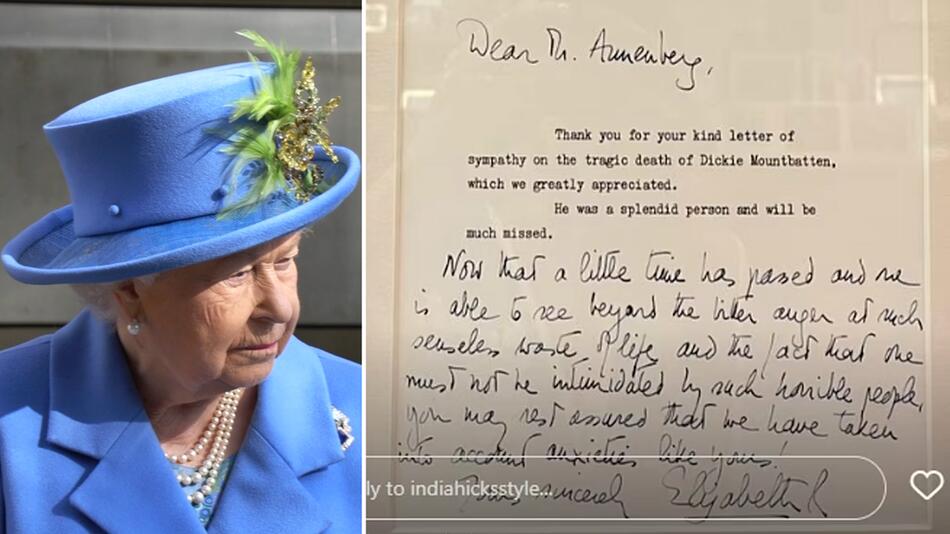 Dear Mr. Annenberg,
Thank you for your kind letter of
sympathy on the tragic death of Dickie Mountbatten,
which we greatly appreciated.
He was a splendid person and will be
much missed.
Now that a little time has passed and one
is able to see beyond the bitter anger at such
senseless waste of life, and the fact that one
must not be intimidated by such horrible people,
you may rest assured that we have taken
into account anxieties like yours!
ly to indiahicksstyle...
Yours sincerely Elizabeth R